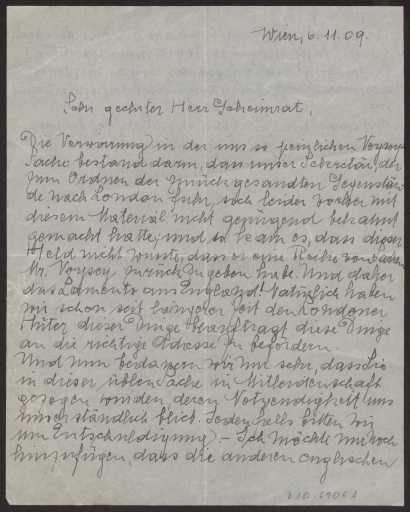 Wien, 6. 11. 09.
Sehr geehrter Herr Geheimrat,
Die Verwirrung in der uns so peinlichen Voysey
Sache bestand darin, dass unser Sekretär, der
zum Ordnen der zurückgesandten Gegenstän-
de nach London fuhr, sich leider vorher mit
diesem Material nicht genügend bekannt
gemacht hatte, und so kam es, dass dieser
Held nicht wusste, dass er eine Reihe von
Mr. Voysey zurückzugeben habe. Und daher
das Lamento aus England! Natürlich haben
wir schon seit längerer Zeit den Londoner
Hüter dieser Dinge beauftragt diese Dinge
an die richtige Adresse zu befördern.
Und nun bedauern wir nur sehr, dass Sie
in dieser üblen Sache in Mitleidenschaft
gezogen wurden, deren Notwendigkeit uns
unverständlich blieb. Jedenfalls bitten wir
um Entschuldigung. – Ich möchte nur noch
hinzufügen, dass die anderen englischen